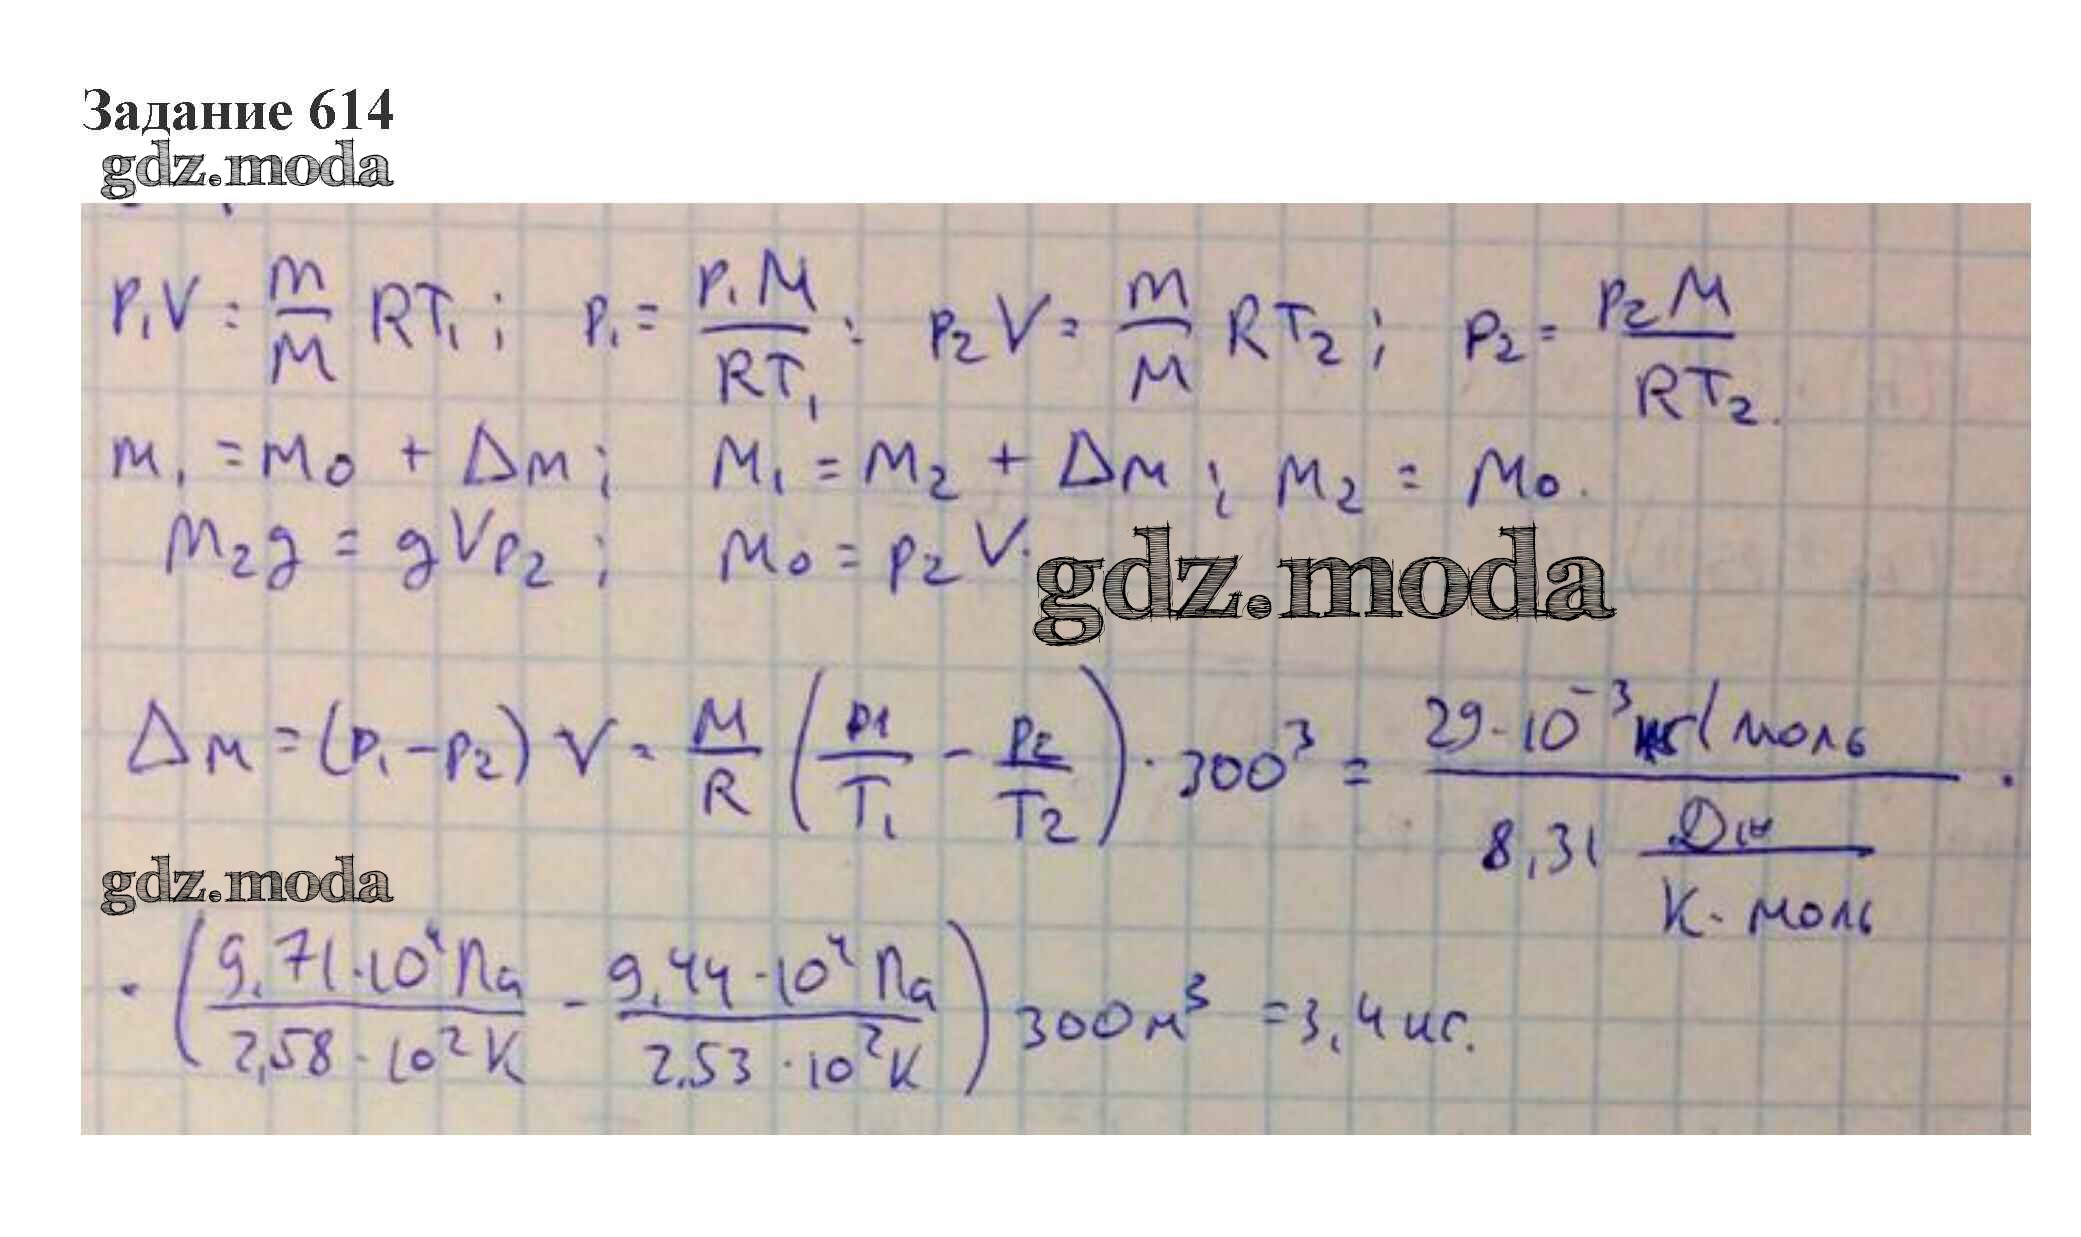 Задание 614
gdz.moda
P₁V = m/M RT₁; p₁ = p₁M/RT₁; p₂V = m/M RT₂; p₂ = p₂M/RT₂.
m₁ = m₀ + Δm; m₁ = m₂ + Δm; m₂ = m₀.
m₂g = gVp₂; m₀ = p₂V.
gdz.moda
Δm = (p₁ - p₂) V = M/R (p1/T₁ - p₂/T₂) · 300³ = 29·10⁻³ кг/моль / 8,31 Дж/К·моль ·
gdz.moda
· (9,71·10⁴ Па / 2,58·10² К - 9,44·10⁴ Па / 2,53·10² К) 300 м³ = 3,4 кг.